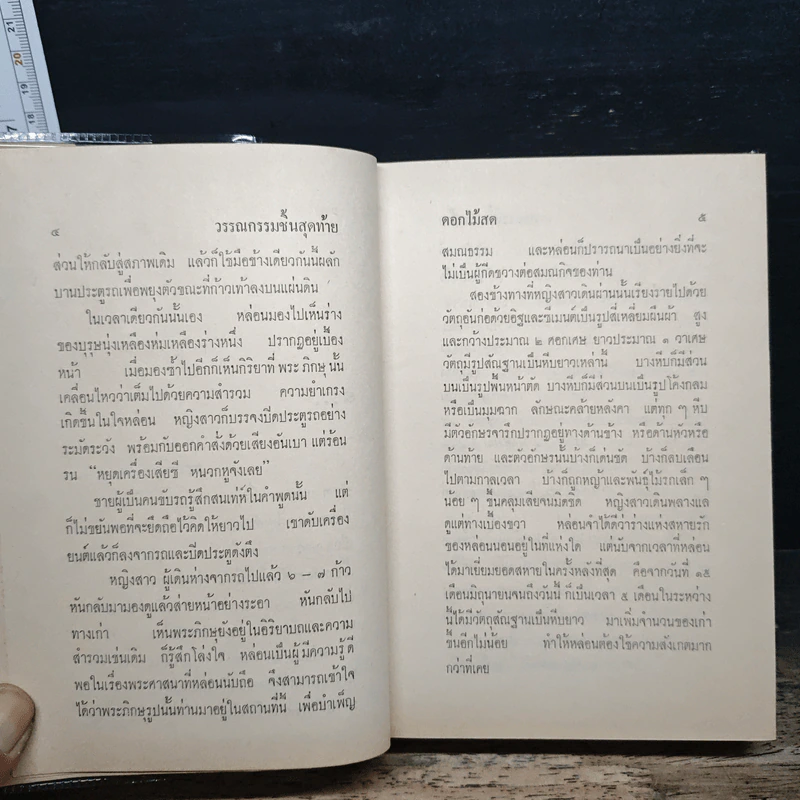 21
20
19
18
17
๔ วรรณกรรมชิ้นสุดท้าย
ส่วนให้กลับสู่สภาพเดิม แล้วก็ใช้มือข้างเดียวกันนี้ผลัก
บานประตูรถเพื่อพยุงตัวขณะที่ก้าวเท้าลงบนแผ่นดิน
ในเวลาเดียวกันนั้นเอง หล่อนมองไปเห็นร่าง
ของบุรุษนุ่งเหลืองห่มเหลืองร่างหนึ่ง ปรากฏอยู่เบื้อง
หน้า เมื่อมองซ้ำไปอีกก็เห็นกิริยาที่ พระ ภิกษุ นั้น
เคลื่อนไหวว่าเต็มไปด้วยความสำรวม ความยำเกรง
เกิดขึ้นในใจหล่อน หญิงสาวก็บรรจงปิดประตูรถอย่าง
ระมัดระวัง พร้อมกับออกคำสั่งด้วยเสียงอันเบา แต่ร้อน
รน “หยุดเครื่องเสียซี หนวกหูจังเลย”
ชายผู้เป็นคนขับรถรู้สึกสนเท่ห์ในคำพูดนั้น แต่
ก็ไม่ขยันพอที่จะยึดถือไว้คิดให้ยาวไป เขาดับเครื่อง
ยนต์แล้วก็ลงจากรถและปิดประตูดังตึง
หญิงสาว ผู้เดินห่างจากรถไปแล้ว ๖ – ๗ ก้าว
หันกลับมามองดูแล้วส่ายหน้าอย่างระอา หันกลับไป
ทางเก่า เห็นพระภิกษุยังอยู่ในอิริยาบถและความ
สำรวมเช่นเดิม ก็รู้สึกโล่งใจ หล่อนเป็นผู้มีความรู้ดี
พอในเรื่องพระศาสนาที่หล่อนนับถือ จึงสามารถเข้าใจ
ได้ว่าพระภิกษุรูปนั้นท่านมาอยู่ในสถานที่นี้ เพื่อบำเพ็ญ
ดอกไม้สด ๕
สมณธรรม และหล่อนก็ปรารถนาเป็นอย่างยิ่งที่จะ
ไม่เป็นผู้กีดขวางต่อสมณกิจของท่าน
สองข้างทางที่หญิงสาวเดินผ่านนั้นเรียงรายไปด้วย
วัตถุอันก่อด้วยอิฐและซีเมนต์เป็นรูปสี่เหลี่ยมผืนผ้า สูง
และกว้างประมาณ ๒ ศอกเศษ ยาวประมาณ ๑ วาเศษ
วัตถุมีรูปสัณฐานเป็นหีบยาวเหล่านี้ บางหีบก็มีส่วน
บนเป็นรูปพื้นหน้าตัด บางหีบก็มีส่วนบนเป็นรูปโค้งกลม
หรือเป็นมุมฉาก ลักษณะคล้ายหลังคา แต่ทุก ๆ หีบ
มีตัวอักษรจารึกปรากฏอยู่ทางด้านข้าง หรือด้านหัวหรือ
ด้านท้าย และตัวอักษรนั้นบ้างก็เด่นชัด บ้างก็ลบเลือน
ไปตามกาลเวลา บ้างก็ถูกหญ้าและพันธุ์ไม้รกเล็ก ๆ
น้อย ๆ ขึ้นคลุมเสียจนมิดชิด หญิงสาวเดินพลางแล
ดูแต่ทางเบื้องขวา หล่อนจำได้ดีว่าร่างแห่งสหายรัก
ของหล่อนนอนอยู่ในที่แห่งใด แต่นับจากเวลาที่หล่อน
ได้มาเยี่ยมยอดสหายในครั้งหลังที่สุด คือจากวันที่ ๑๕
เดือนมิถุนายนจนถึงวันนี้ ก็เป็นเวลา ๕ เดือนในระหว่าง
นี้ได้มีวัตถุสัณฐานเป็นหีบยาว มาเพิ่มจำนวนของเก่า
ขึ้นอีกไม่น้อย ทำให้หล่อนต้องใช้ความสังเกตมาก
กว่าที่เคย